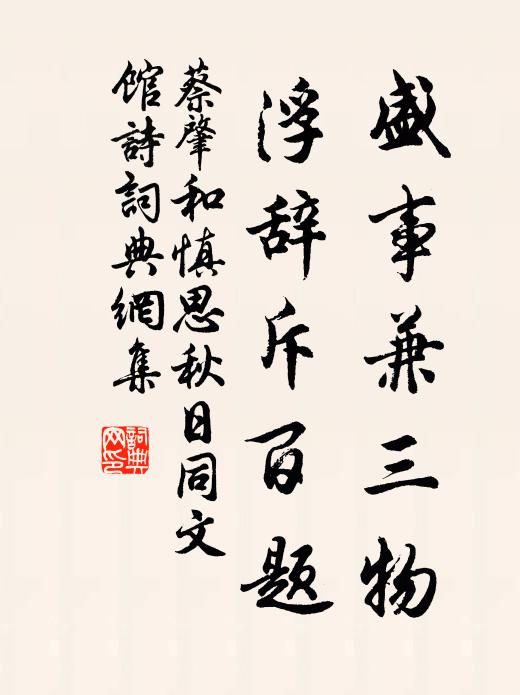 盛事兼三物
浮辞斥百题
蔡肇和慎思秋日同文
馆詩詞典網集
詞典網印